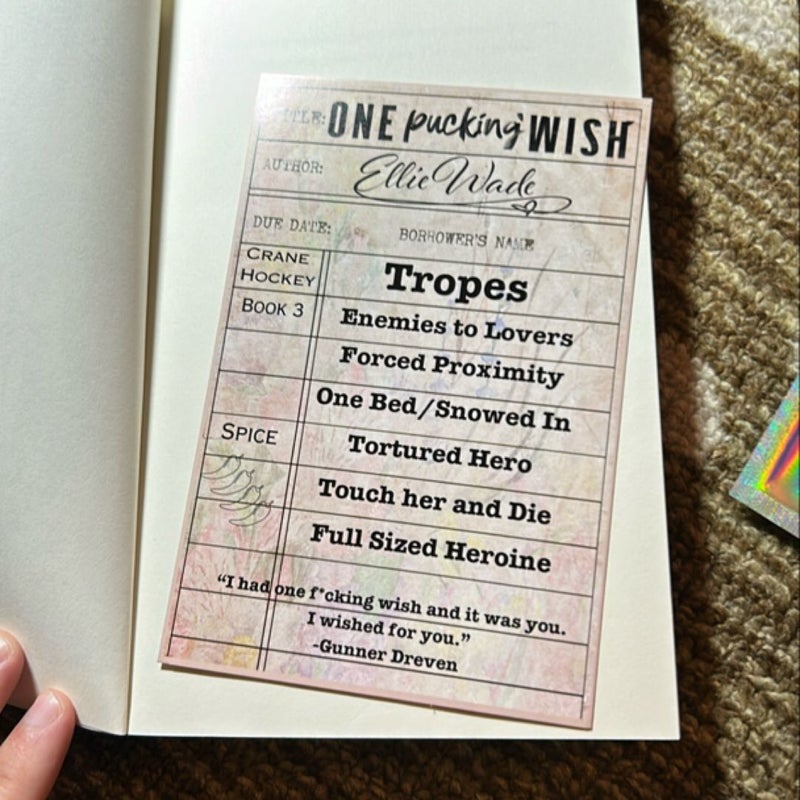 TITLE: ONE pucking WISH
AUTHOR: Ellie Wade
DUE DATE: BORROWER'S NAME
CRANE HOCKEY Tropes
BOOK 3 Enemies to Lovers
Forced Proximity
One Bed/Snowed In
SPICE Tortured Hero
Touch her and Die
Full Sized Heroine
"I had one f*cking wish and it was you.
I wished for you."
-Gunner Dreven